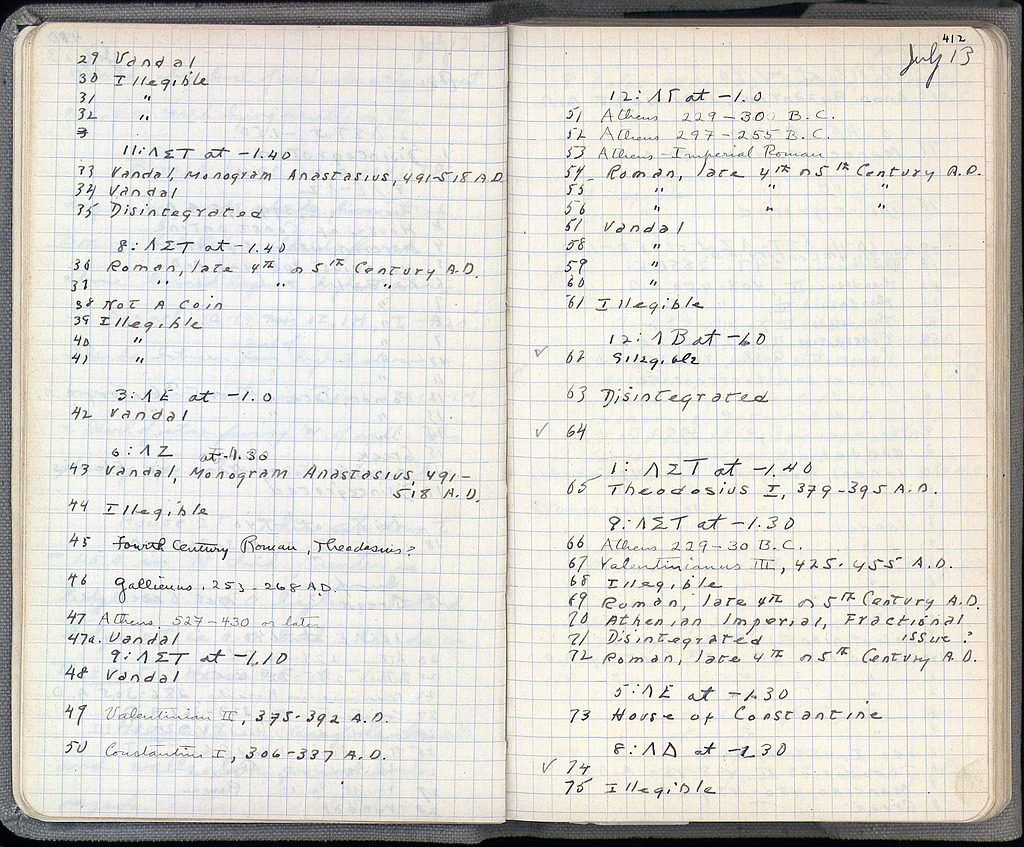 29 Vandal
30 Illegible
31 "
32 "
11: ΛΣΤ at -1.40
33 Vandal, Monogram Anastasius, 491-518 A.D.
34 Vandal
35 Disintegrated
8: ΛΣΤ at -1.40
36 Roman, late 4th or 5th Century A.D.
37 " " "
38 Not A Coin
39 Illegible
40 "
41 "
3: ΛΕ at -1.0
42 Vandal
6: ΛΖ at -1.30
43 Vandal, Monogram Anastasius, 491-
518 A.D.
44 Illegible
45 Fourth Century Roman, Theodosius?
46 Gallienus, 253-268 A.D.
47 Athens, 527-430 or later
47a. Vandal
9: ΛΣΤ at -1.10
48 Vandal
49 Valentinian II, 375-392 A.D.
50 Constantine I, 306-337 A.D.
412
July 13
12: ΛΓ at -1.0
51 Athens 229-30 B.C.
52 Athens 297-255 B.C.
53 Athens-Imperial Roman
54 Roman, late 4th or 5th Century A.D.
55 " " "
56 " " "
57 Vandal
58 "
59 "
60 "
61 Illegible
12: ΛΒ at -1.0
✓ 62 Illegible
63 Disintegrated
✓ 64
1: ΛΣΤ at -1.40
65 Theodosius I, 379-395 A.D.
9: ΛΣΤ at -1.30
66 Athens 229-30 B.C.
67 Valentinianus III, 425-455 A.D.
68 Illegible
69 Roman, late 4th or 5th Century A.D.
70 Athenian Imperial, Fractional
71 Disintegrated issue?
72 Roman, late 4th or 5th Century A.D.
5: ΛΕ at -1.30
73 House of Constantine
8: ΛΔ at -1.30
✓ 74
75 Illegible